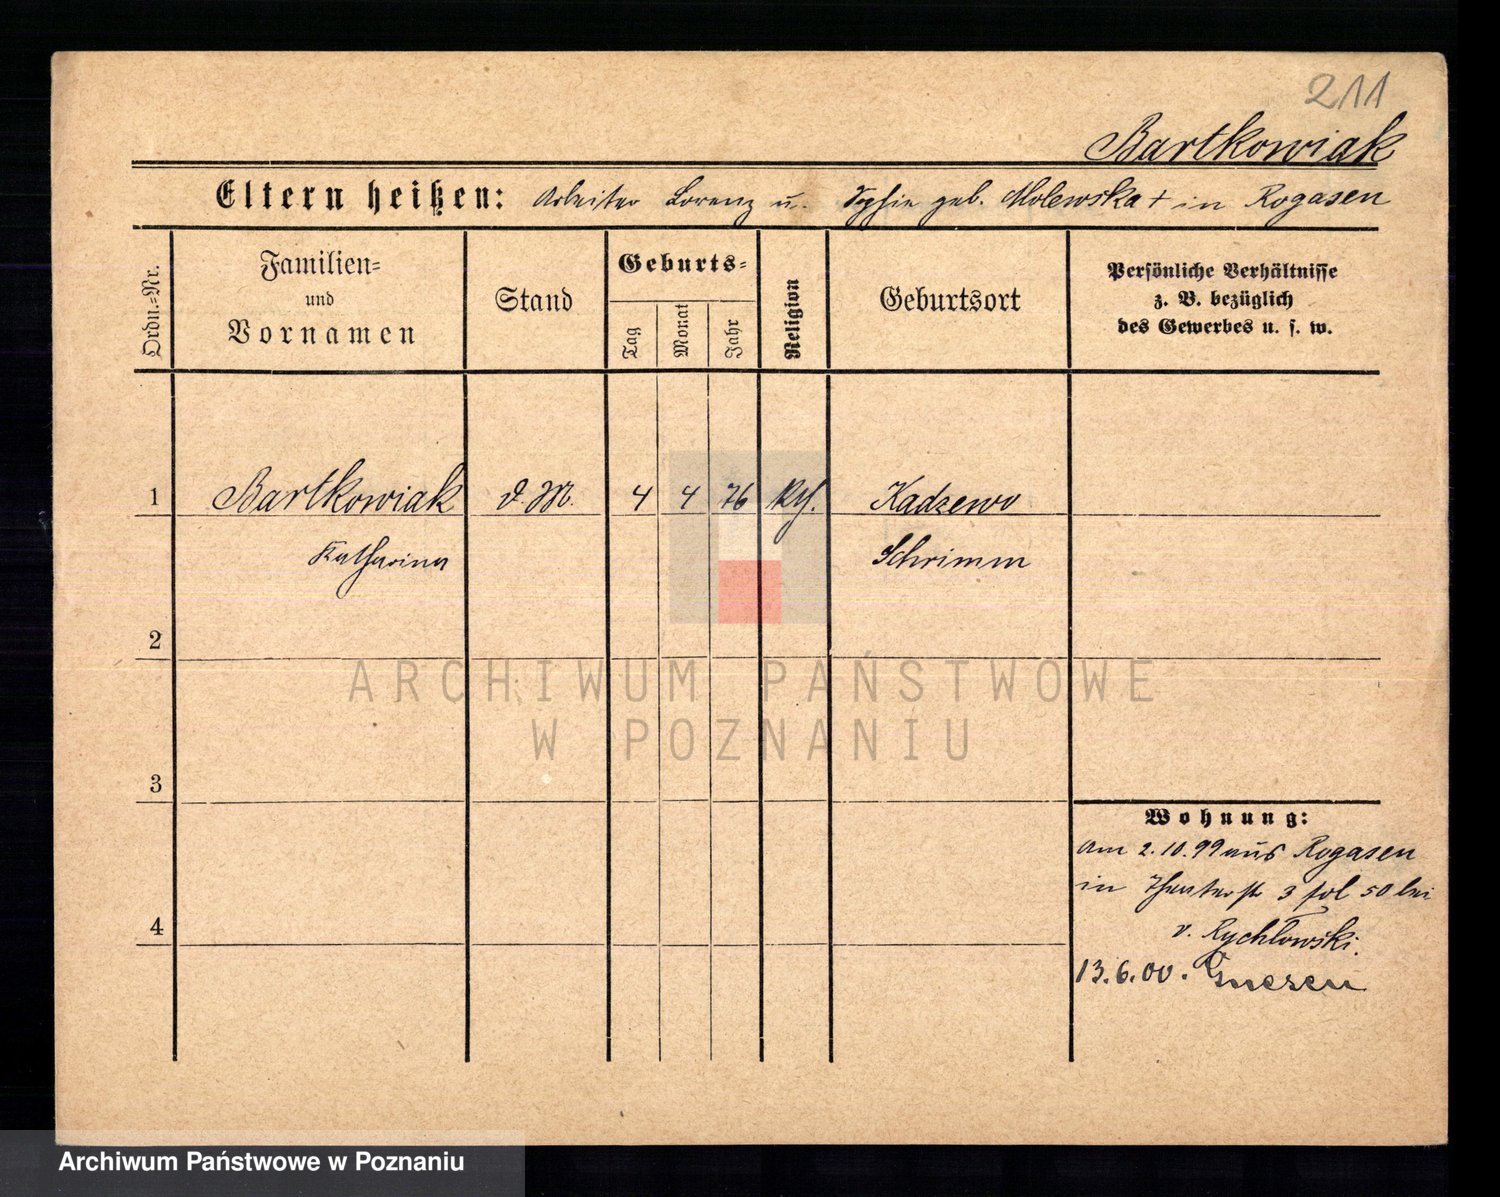 211
Bartkowiak
Eltern heißen: Arbeiter Lorenz u. Sophie geb. Molewska + in Rogasen
Ordn.=Nr.
Familien=
und
Vornamen
Stand
Geburts=
Tag
Monat
Jahr
Religion
Geburtsort
Persönliche Verhältnisse
z. B. bezüglich
des Gewerbes u. s. w.
1 Bartkowiak d. M. 4 4 76 kth. Kadzewo
Katharina Schrimm
2
ARCHIWUM PAŃSTWOWE
W POZNANIU
3
Wohnung:
am 2.10.99 aus Rogasen
in Theaterstr 3 fol 50 bei
4
v. Rychłowski.
13.6.00. Gnesen
Archiwum Państwowe w Poznaniu